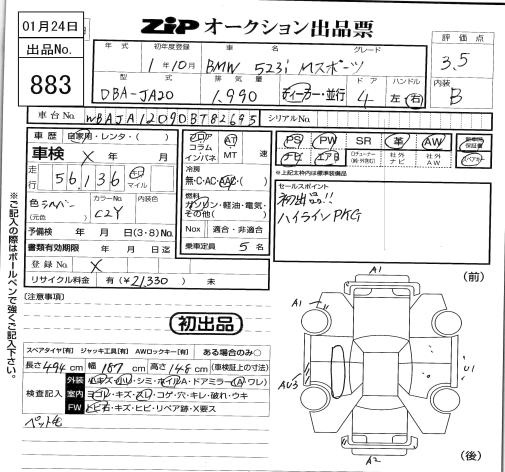 01月24日
出品No.
883
ZIP オークション出品票
評価点
3.5
内装
B
年式 初年度登録 車名 グレード
1年10月 BMW 523i Mスポーツ
型式 排気量 ドア ハンドル
DBA-JA20 1,990 ディーラー・並行 4 左・右
車台No. WBAJA12090BT82695 シリアルNo.
車歴 自家用・レンタ・( )
車検 X 年 月
走行 56,136 km マイル
色 カラーNo. 内装色
(元色) C2Y
予備検 年 月 日(3・8)No.
書類有効期限 年 月 日迄
登録No. X
リサイクル料金 有(¥21,330) 未
フロア コラム インパネ
AT MT 速
冷房
無・C・AC・AAC・( )
燃料
ガソリン・軽油・電気・その他( )
Nox 適合・非適合
乗車定員 5 名
PS PW SR 革 AW
ナビ エアB 社外ナビ 社外AW
保証書
スペアキー
*上記太枠内は標準装備品
セールスポイント
初出品!!
ハイラインPKG
※ご記入の際はボールペンで強くご記入下さい。
(注意事項)
初出品
スペアタイヤ[有] ジャッキ工具[有] AWロックキー[有] ある場合のみ○
長さ 494cm 幅 187cm 高さ 148cm (車検証上の寸法)
検査記入
外装 小キズ・小凹・シミ・ホイルA・ドアミラー(A・ワレ)
室内 ヨゴレ・キズ・スレ・コゲ・穴・キレ・破れ・ウキ
FW トビ石・キズ・ヒビ・リペア跡・X要ス
ペット毛
(前)
A1
A1
AU3
U1
A2
(後)